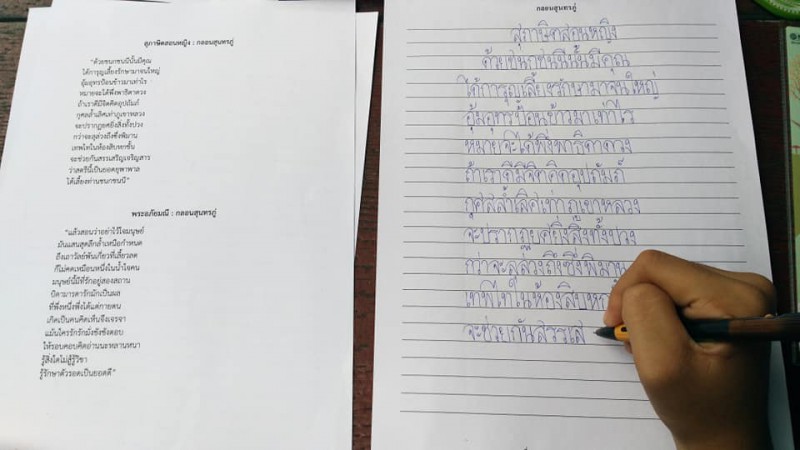 สุภาษิตสอนหญิง : กลอนสุนทรภู่
"ด้วยชนกชนนีนั้นมีคุณ
ได้การุญเลี้ยงรักษามาจนใหญ่
อุ้มอุทรป้อนข้าวมาเท่าไร
หมายจะได้พึ่งพาธิดาดวง
ถ้าเราดีมีจิตคิดอุปถัมภ์
กุศลล้ำเลิศเท่าภูเขาหลวง
จะปรากฏยศยิ่งสิ่งทั้งปวง
กว่าจะลุล่วงถึงซึ่งพิมาน
เทพไทในห้องสิบหกชั้น
จะช่วยกันสรรเสริญเจริญสาร
ว่าสตรีนี้เป็นยอดยุพาพาล
ได้เลี้ยงท่านชนกชนนี"
พระอภัยมณี : กลอนสุนทรภู่
"แล้วสอนว่าอย่าไว้ใจมนุษย์
มันแสนสุดลึกล้ำเหลือกำหนด
ถึงเถาวัลย์พันเกี่ยวที่เลี้ยวลด
ก็ไม่คดเหมือนหนึ่งในน้ำใจคน
มนุษย์นี้มีที่รักอยู่สองสถาน
บิดามารดารักมักเป็นผล
ที่พึ่งหนึ่งพึ่งได้แต่กายตน
เกิดเป็นคนคิดเห็นจึงเจรจา
แม้นใครรักรักมั่งชังชังตอบ
ให้รอบคอบคิดอ่านนะหลานหนา
รู้สิ่งใดไม่สู้รู้วิชา
รู้รักษาตัวรอดเป็นยอดดี"
กลอนสุนทรภู่
สุภาษิตสอนหญิง
ด้วยชนกชนนีนั้นมีคุณ
ได้การุญเลี้ยงรักษามาจนใหญ่
อุ้มอุทรป้อนข้าวมาเท่าไร
หมายจะได้พึ่งพาธิดาดวง
ถ้าเราดีมีจิตคิดอุปถัมภ์
กุศลล้ำเลิศเท่าภูเขาหลวง
จะปรากฏยศยิ่งสิ่งทั้งปวง
กว่าจะลุล่วงถึงซึ่งพิมาน
เทพไทในห้องสิบห
จะช่วยกันสรรเส